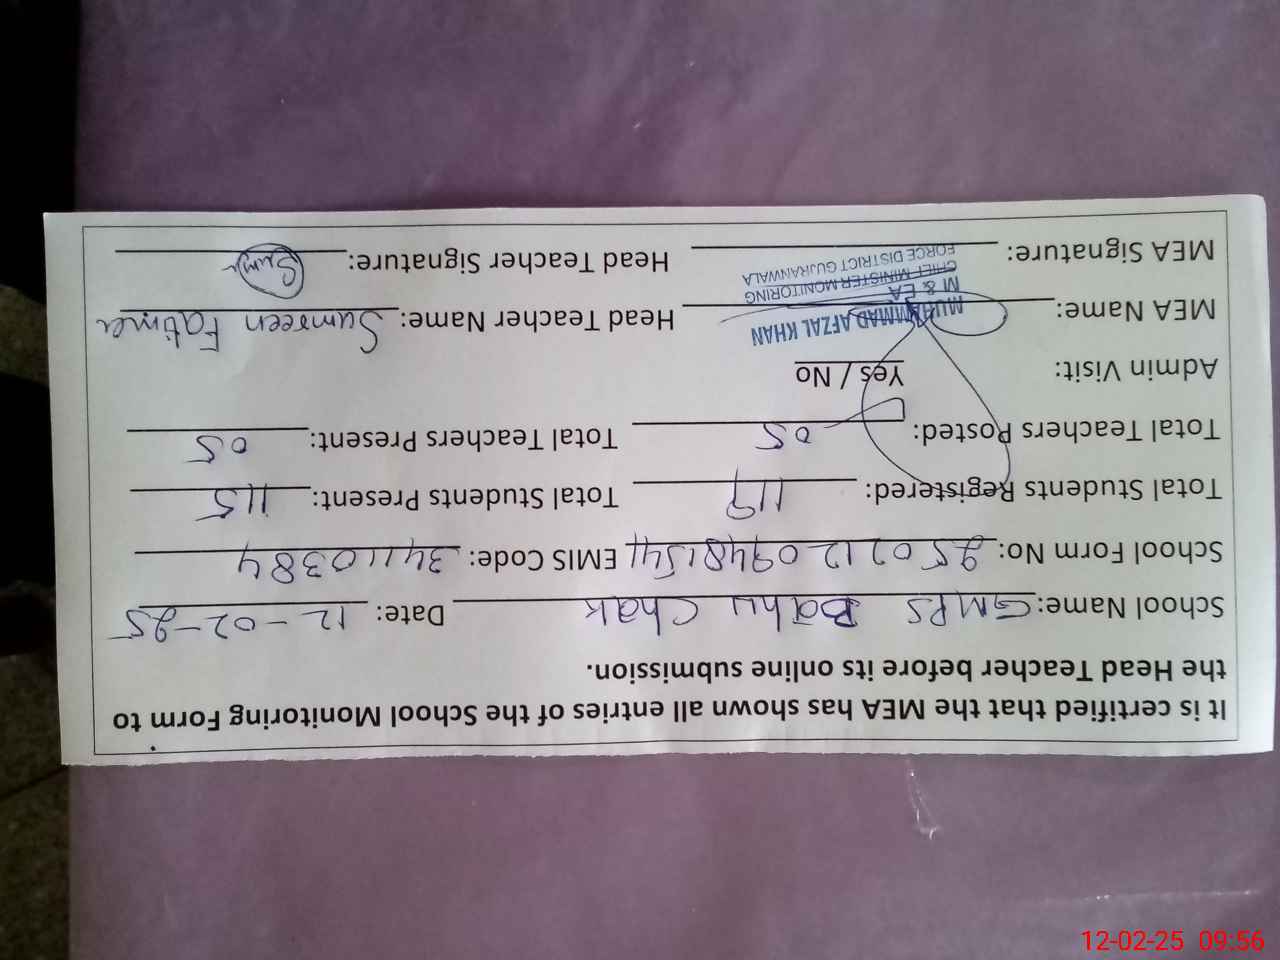 It is certified that the MEA has shown all entries of the School Monitoring Form to
the Head Teacher before its online submission.
School Name: GMPS Bahu Chak Date: 12-02-25
School Form No: EMIS Code: 34110384
Total Students Registered: 119 Total Students Present: 115
Total Teachers Posted: 05 Total Teachers Present: 05
Admin Visit: Yes / No
MEA Name: MUHAMMAD AFZAL KHAN Head Teacher Name: Samreen Fatima
M & EA
CHIEF MINISTER MONITORING
FORCE DISTRICT GUJRANWALA
MEA Signature: Head Teacher Signature:
12-02-25 09:56